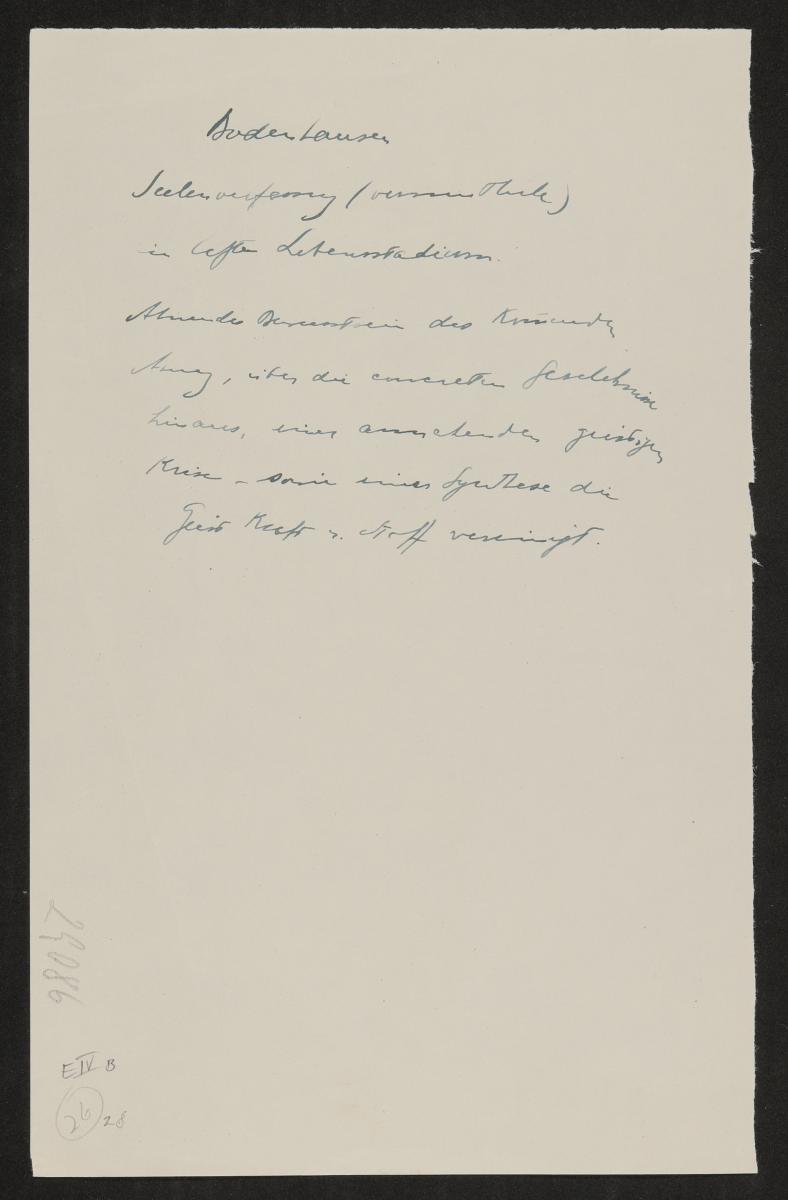 Bodenhausen
Seelenverfassung (vermuthete)
im letzten Lebensstadium.
Ahnendes Bewusstsein des Kommenden
Ahnung, über die concreten Geschehnisse
hinaus, einer anstehenden geistigen
Krise – sowie einer Synthese die
Geist Kraft u. Stoff vereinigt.
E IV B
26 28